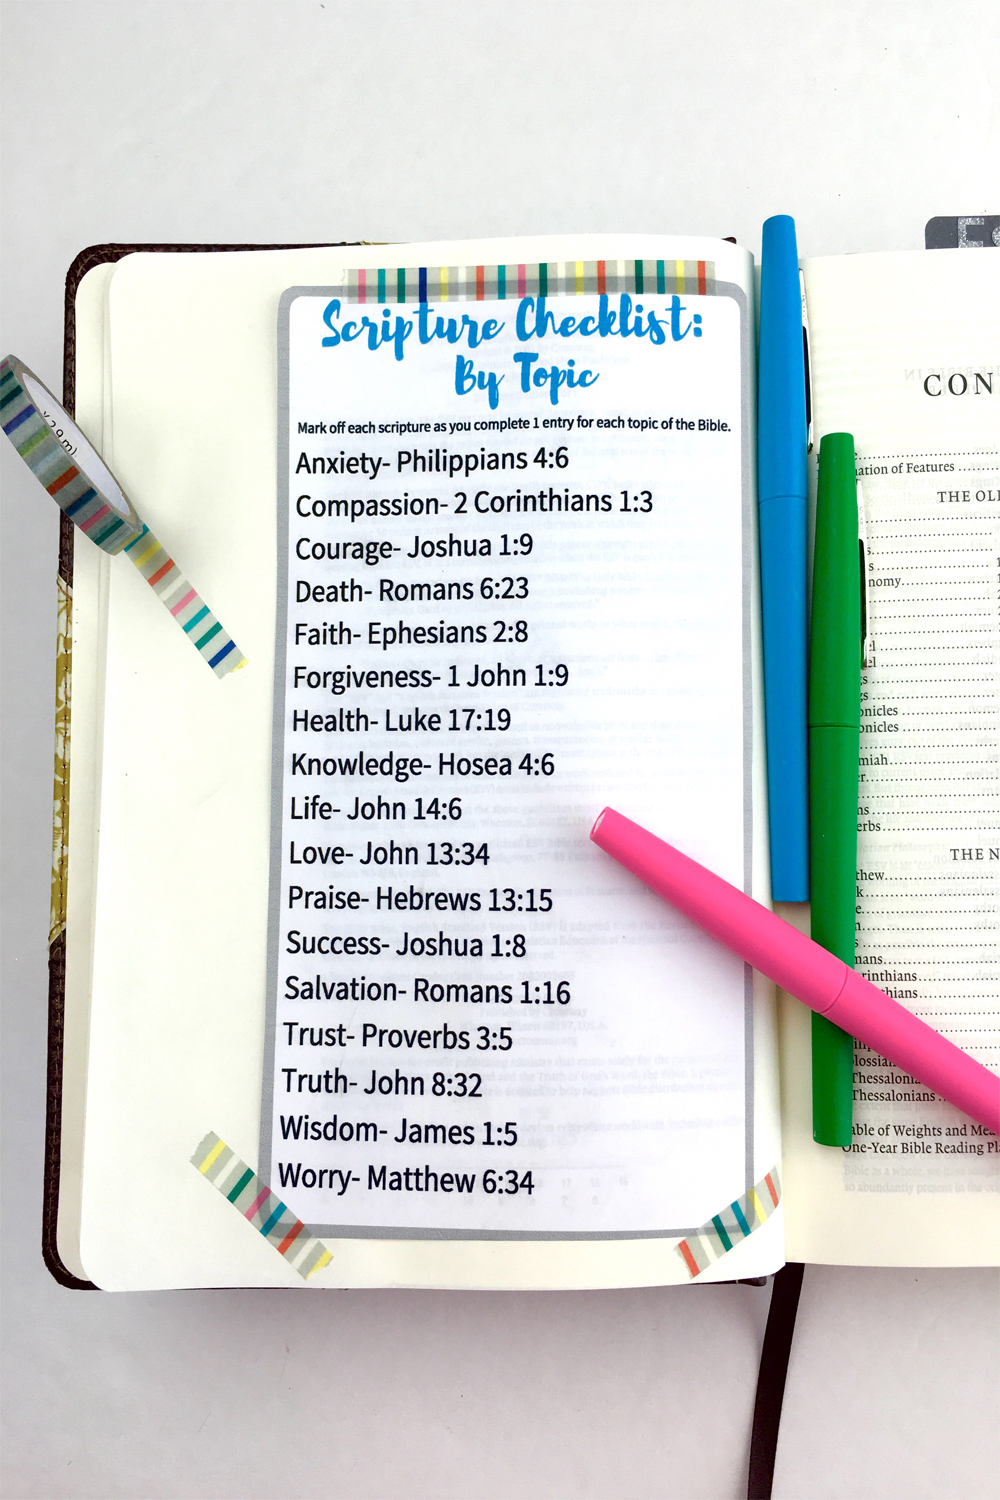 Scripture Checklist:
By Topic
Mark off each scripture as you complete 1 entry for each topic of the Bible.
Anxiety- Philippians 4:6
Compassion- 2 Corinthians 1:3
Courage- Joshua 1:9
Death- Romans 6:23
Faith- Ephesians 2:8
Forgiveness- 1 John 1:9
Health- Luke 17:19
Knowledge- Hosea 4:6
Life- John 14:6
Love- John 13:34
Praise- Hebrews 13:15
Success- Joshua 1:8
Salvation- Romans 1:16
Trust- Proverbs 3:5
Truth- John 8:32
Wisdom- James 1:5
Worry- Matthew 6:34
CON
of Features
THE OL
THE N
Thessalonians
of Weights and
One-Year Bible Reading